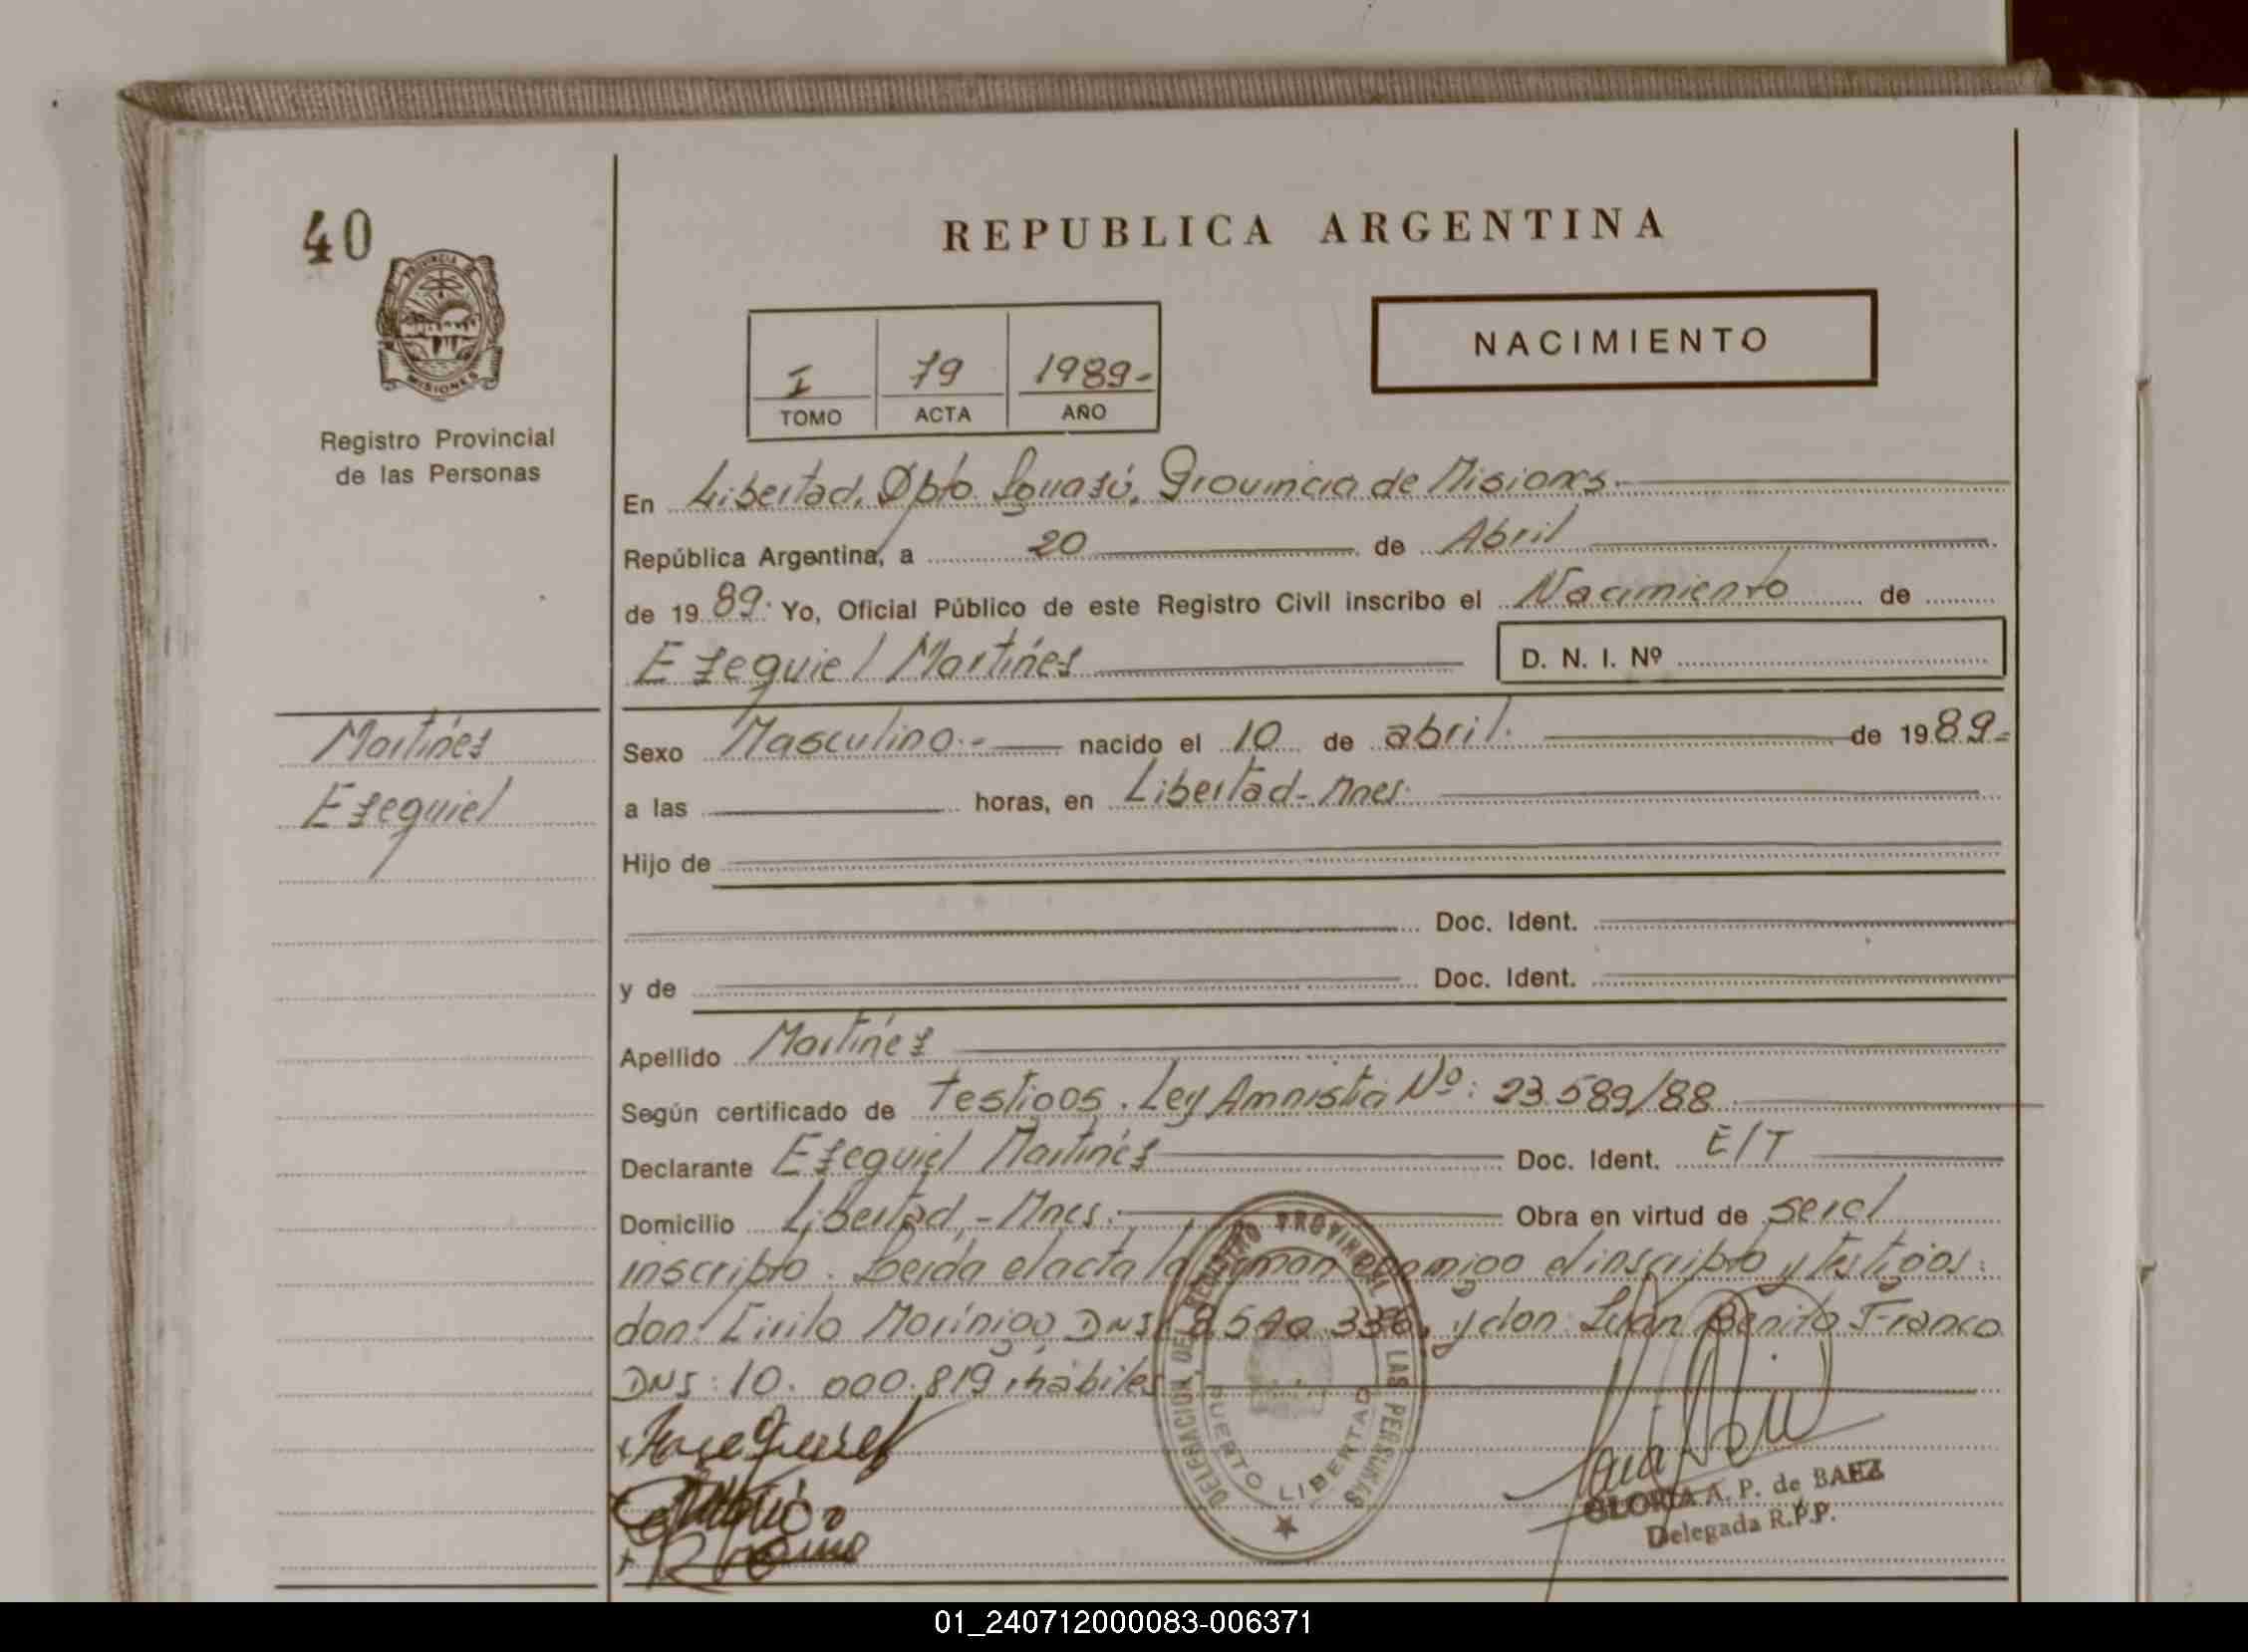 40
PROVINCIA DE
MISIONES
Registro Provincial
de las Personas
REPUBLICA ARGENTINA
I 79 1989-
TOMO ACTA AÑO
NACIMIENTO
En Libertad, Dpto. Iguazú, Provincia de Misiones.
República Argentina, a 20 de Abril
de 1989. Yo, Oficial Público de este Registro Civil inscribo el Nacimiento de
Ezequiel Martínez
D. N. I. Nº
Martínez
Ezequiel
Sexo Masculino.- nacido el 10 de abril. de 1989-
a las horas, en Libertad-Mnes.
Hijo de
Doc. Ident.
y de Doc. Ident.
Apellido Martínez
Según certificado de Testigos. Ley Amnistia Nº: 23.589/88
Declarante Ezequiel Martínez Doc. Ident. E/T
Domicilio Libertad,-Mnes. Obra en virtud de ser el
inscripto. Leida el acta la firman conmigo el inscripto y testigos:
don: Cirilo Morínigo DNI y don: Juan Benito Franco
DNI: 10.000.819, hábiles
DELEGACION DEL REGISTRO PROVINCIAL DE LAS PERSONAS
PUERTO LIBERTAD
GLORIA A. P. de BAEZ
Delegada R.P.P.
01_240712000083-006371